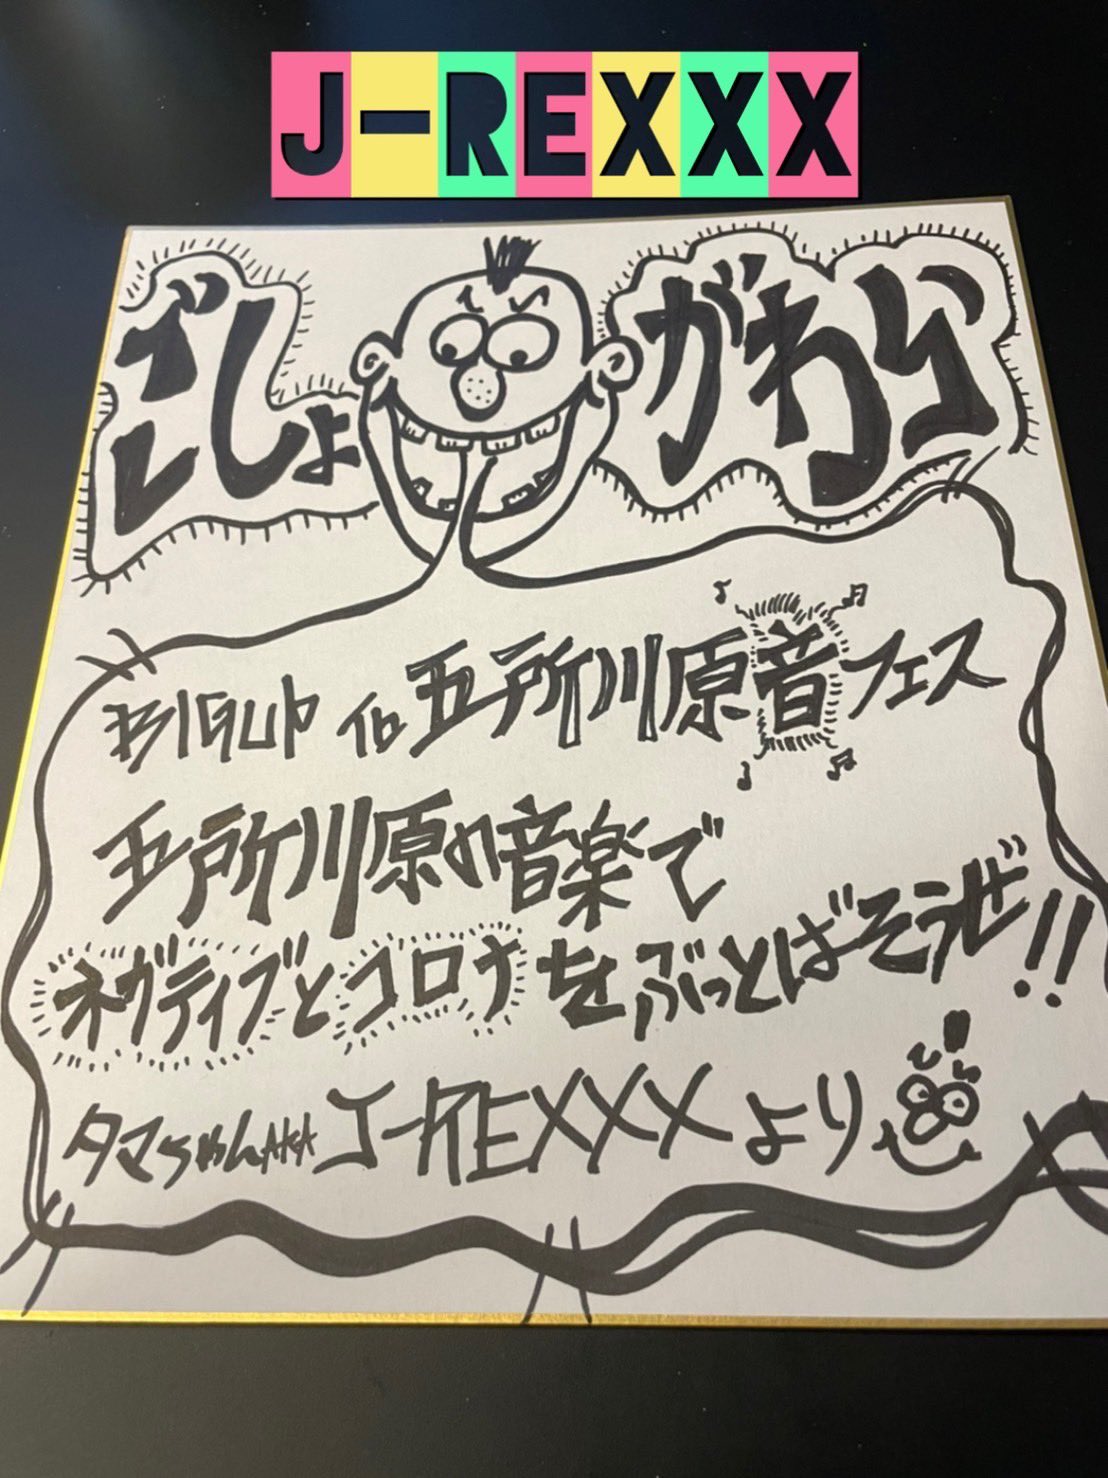 J-REXXX
ごしょがわら
BIGUP to 五所川原音フェス
五所川原の音楽で
ネガティブとコロナをぶっとばそうぜ!!
タマちゃんAKA J-REXXXより